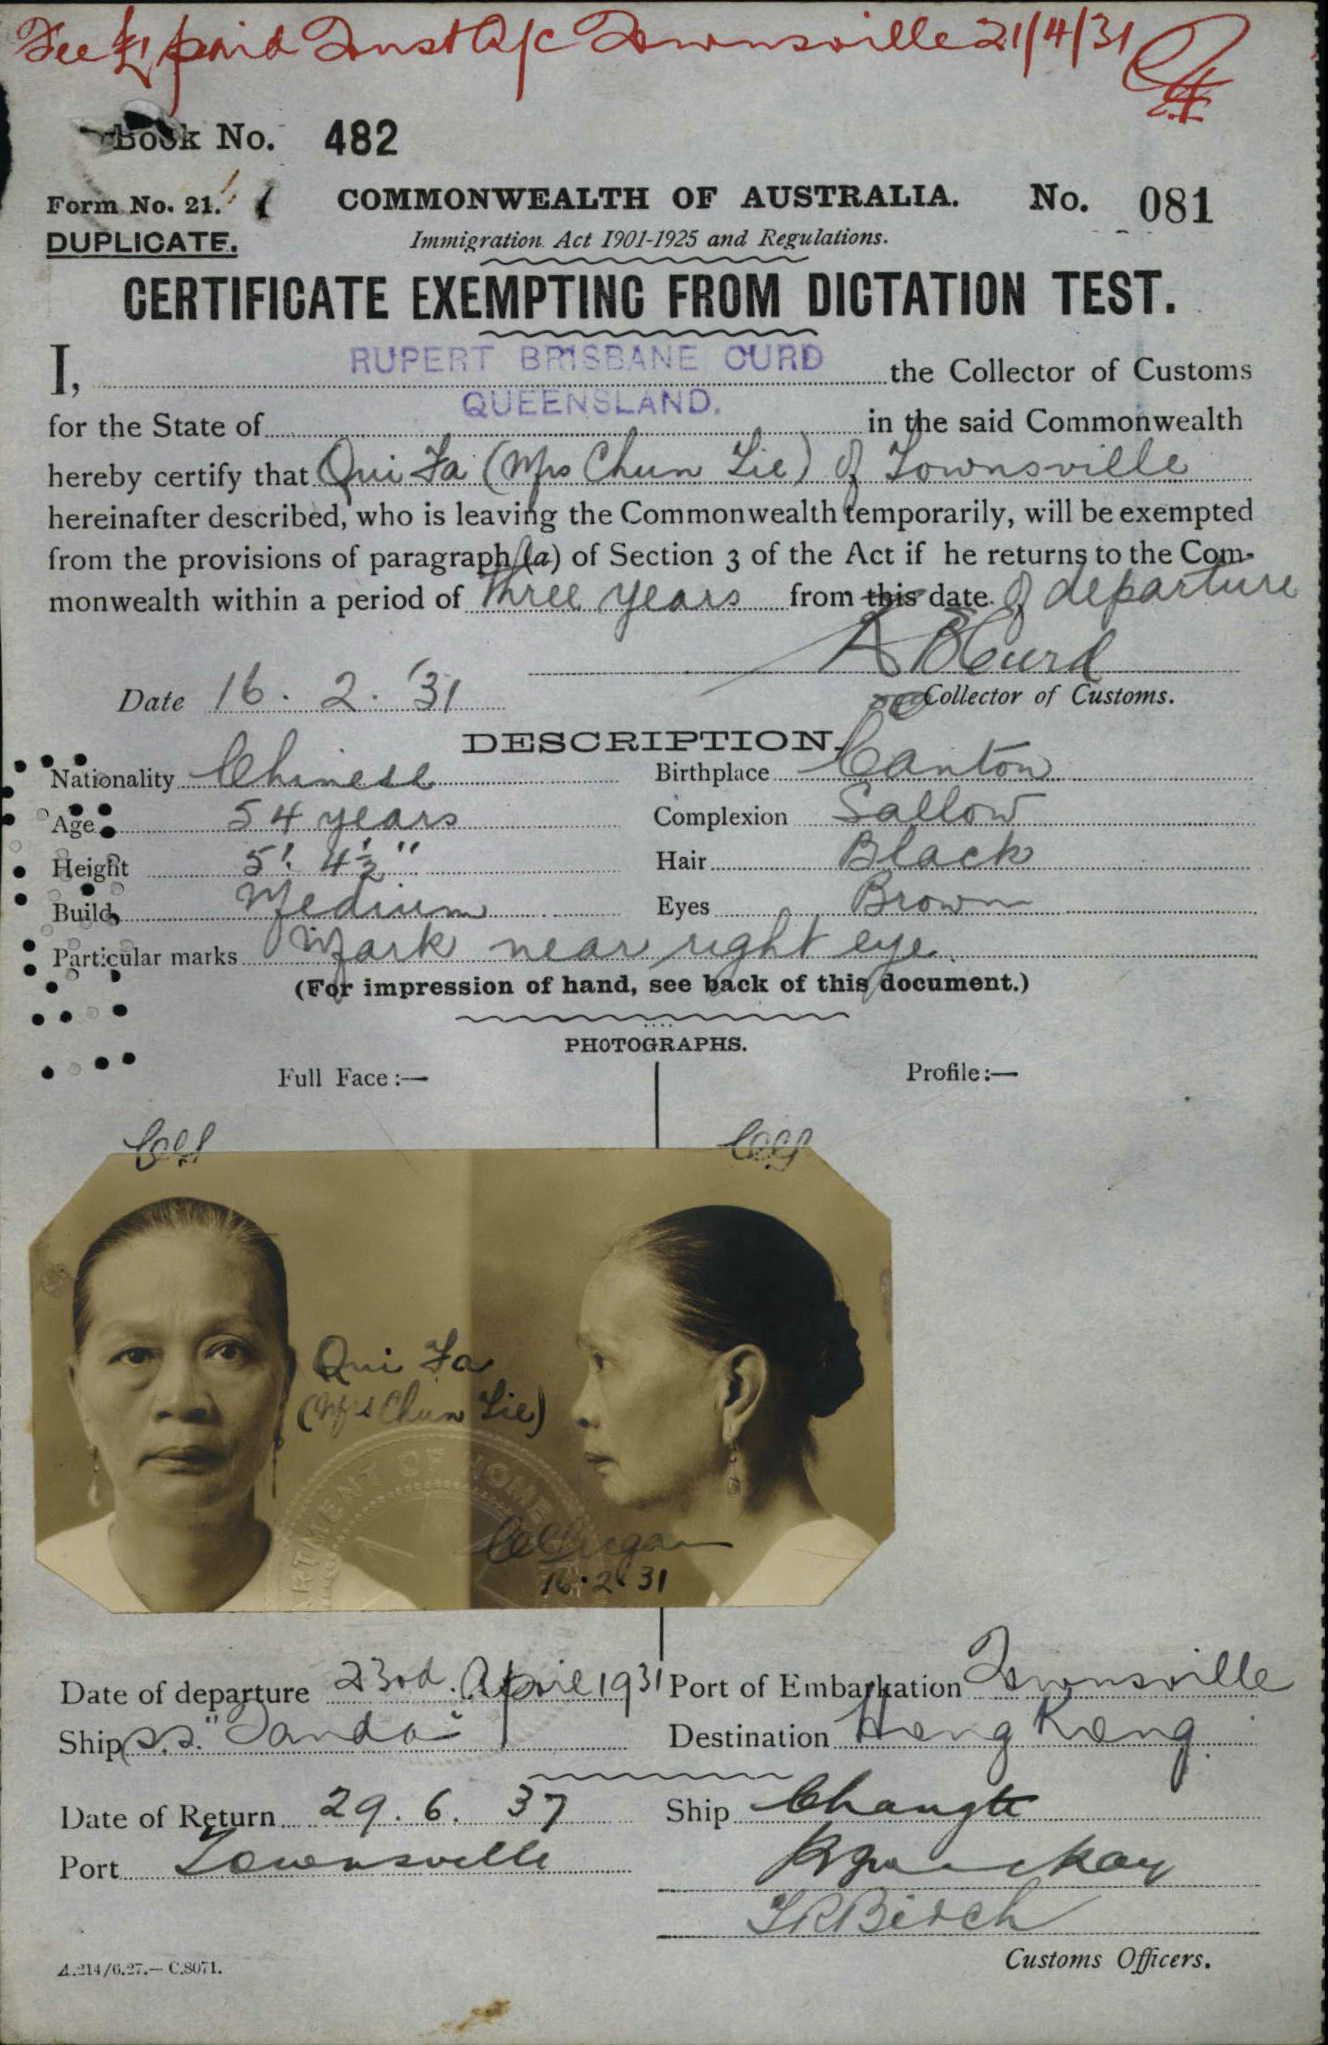 Fee £1 paid Trust A/c Townsville 21/4/31
Book No. 482
Form No. 21.
COMMONWEALTH OF AUSTRALIA. No. 081
DUPLICATE.
Immigration Act 1901-1925 and Regulations.
CERTIFICATE EXEMPTING FROM DICTATION TEST.
I, RUPERT BRISBANE CURD the Collector of Customs
for the State of QUEENSLAND. in the said Commonwealth
hereby certify that Qui Fa (Mrs Chun Lie) of Townsville
hereinafter described, who is leaving the Commonwealth temporarily, will be exempted
from the provisions of paragraph (a) of Section 3 of the Act if he returns to the Com-
monwealth within a period of three years from this date of departure
R B Curd
Date 16. 2. '31
Collector of Customs.
DESCRIPTION.
Nationality Chinese Birthplace Canton
Age 54 years Complexion Sallow
Height 5'. 4½" Hair Black
Build Medium Eyes Brown
Particular marks Mark near right eye.
(For impression of hand, see back of this document.)
PHOTOGRAPHS.
Full Face:— Profile:—
Qui Fa
(Mrs Chun Lie)
16.2.31
Date of departure 23rd. April 1931 Port of Embarkation Townsville
Ship S.S. "Tanda" Destination Hong Kong.
Date of Return 29. 6. 37 Ship Changte
Port Townsville
Customs Officers.
A.214/6.27.— C.8071.